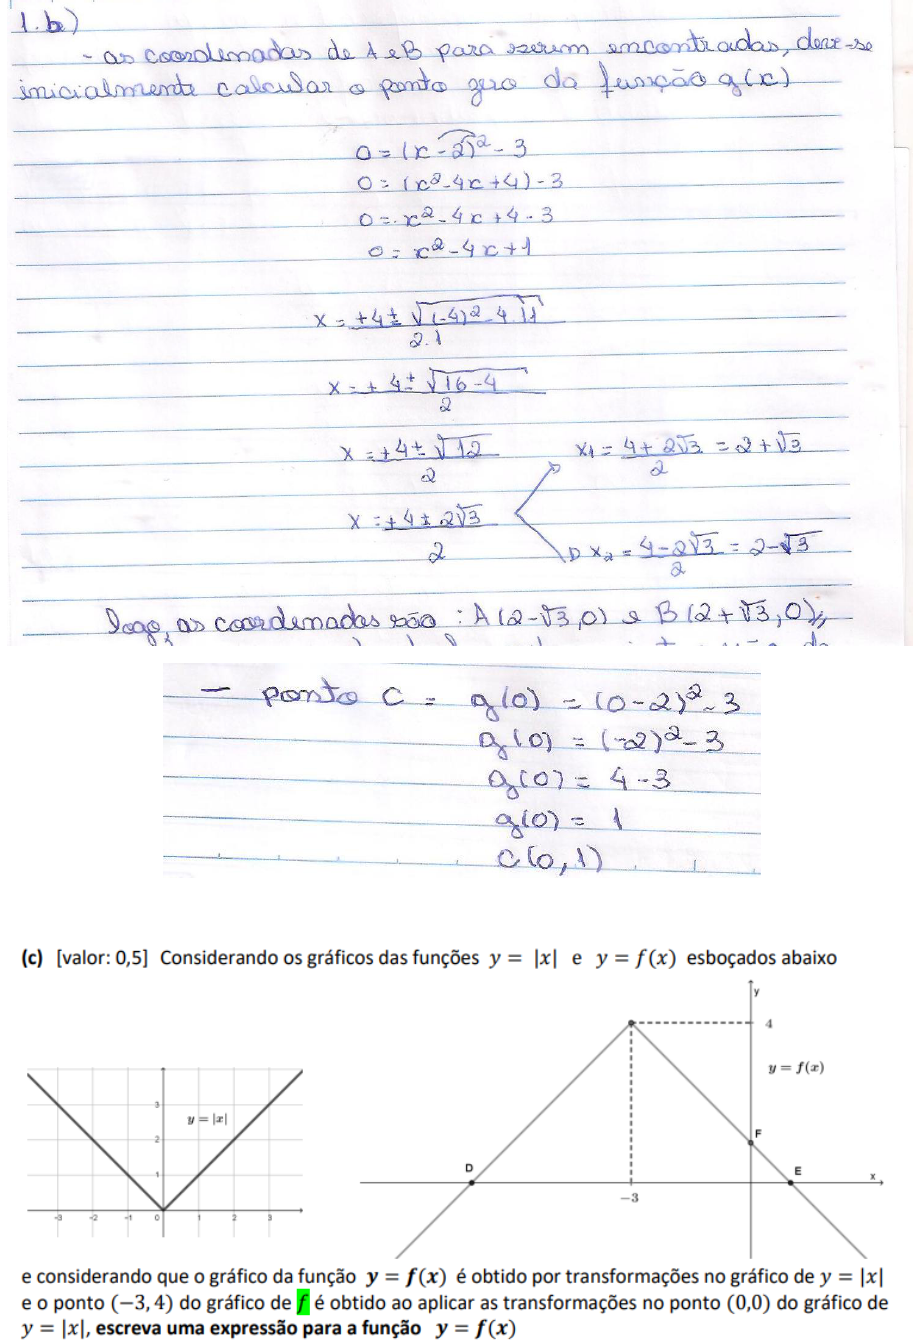 1.b)
- as coordenadas de A e B para serem encontradas, deve-se
inicialmente calcular o ponto zero da função g(x)
0 = (x - 2)² - 3
0 = (x² - 4x + 4) - 3
0 = x² - 4x + 4 - 3
0 = x² - 4x + 1
x = +4 ± √(-4)² - 4.1.1
2.1
x = + 4 ± √16 - 4
2
x = +4 ± √12
2
x1 = 4 + 2√3 = 2 + √3
2
x = +4 ± 2√3
2
x2 = 4 - 2√3 = 2 - √3
2
logo, as coordenadas são : A (2-√3, 0) e B (2+√3, 0),
- ponto C = g(0) = (0 - 2)² - 3
g(0) = (-2)² - 3
g(0) = 4 - 3
g(0) = 1
C(0, 1)
(c) [valor: 0,5] Considerando os gráficos das funções y = |x| e y = f(x) esboçados abaixo
y
4
y = f(x)
3
y = |x|
2
F
1
D
E
x
-3
-3 -2 -1 0 1 2 3
e considerando que o gráfico da função y = f(x) é obtido por transformações no gráfico de y = |x|
e o ponto (−3, 4) do gráfico de f é obtido ao aplicar as transformações no ponto (0,0) do gráfico de
y = |x|, escreva uma expressão para a função y = f(x)